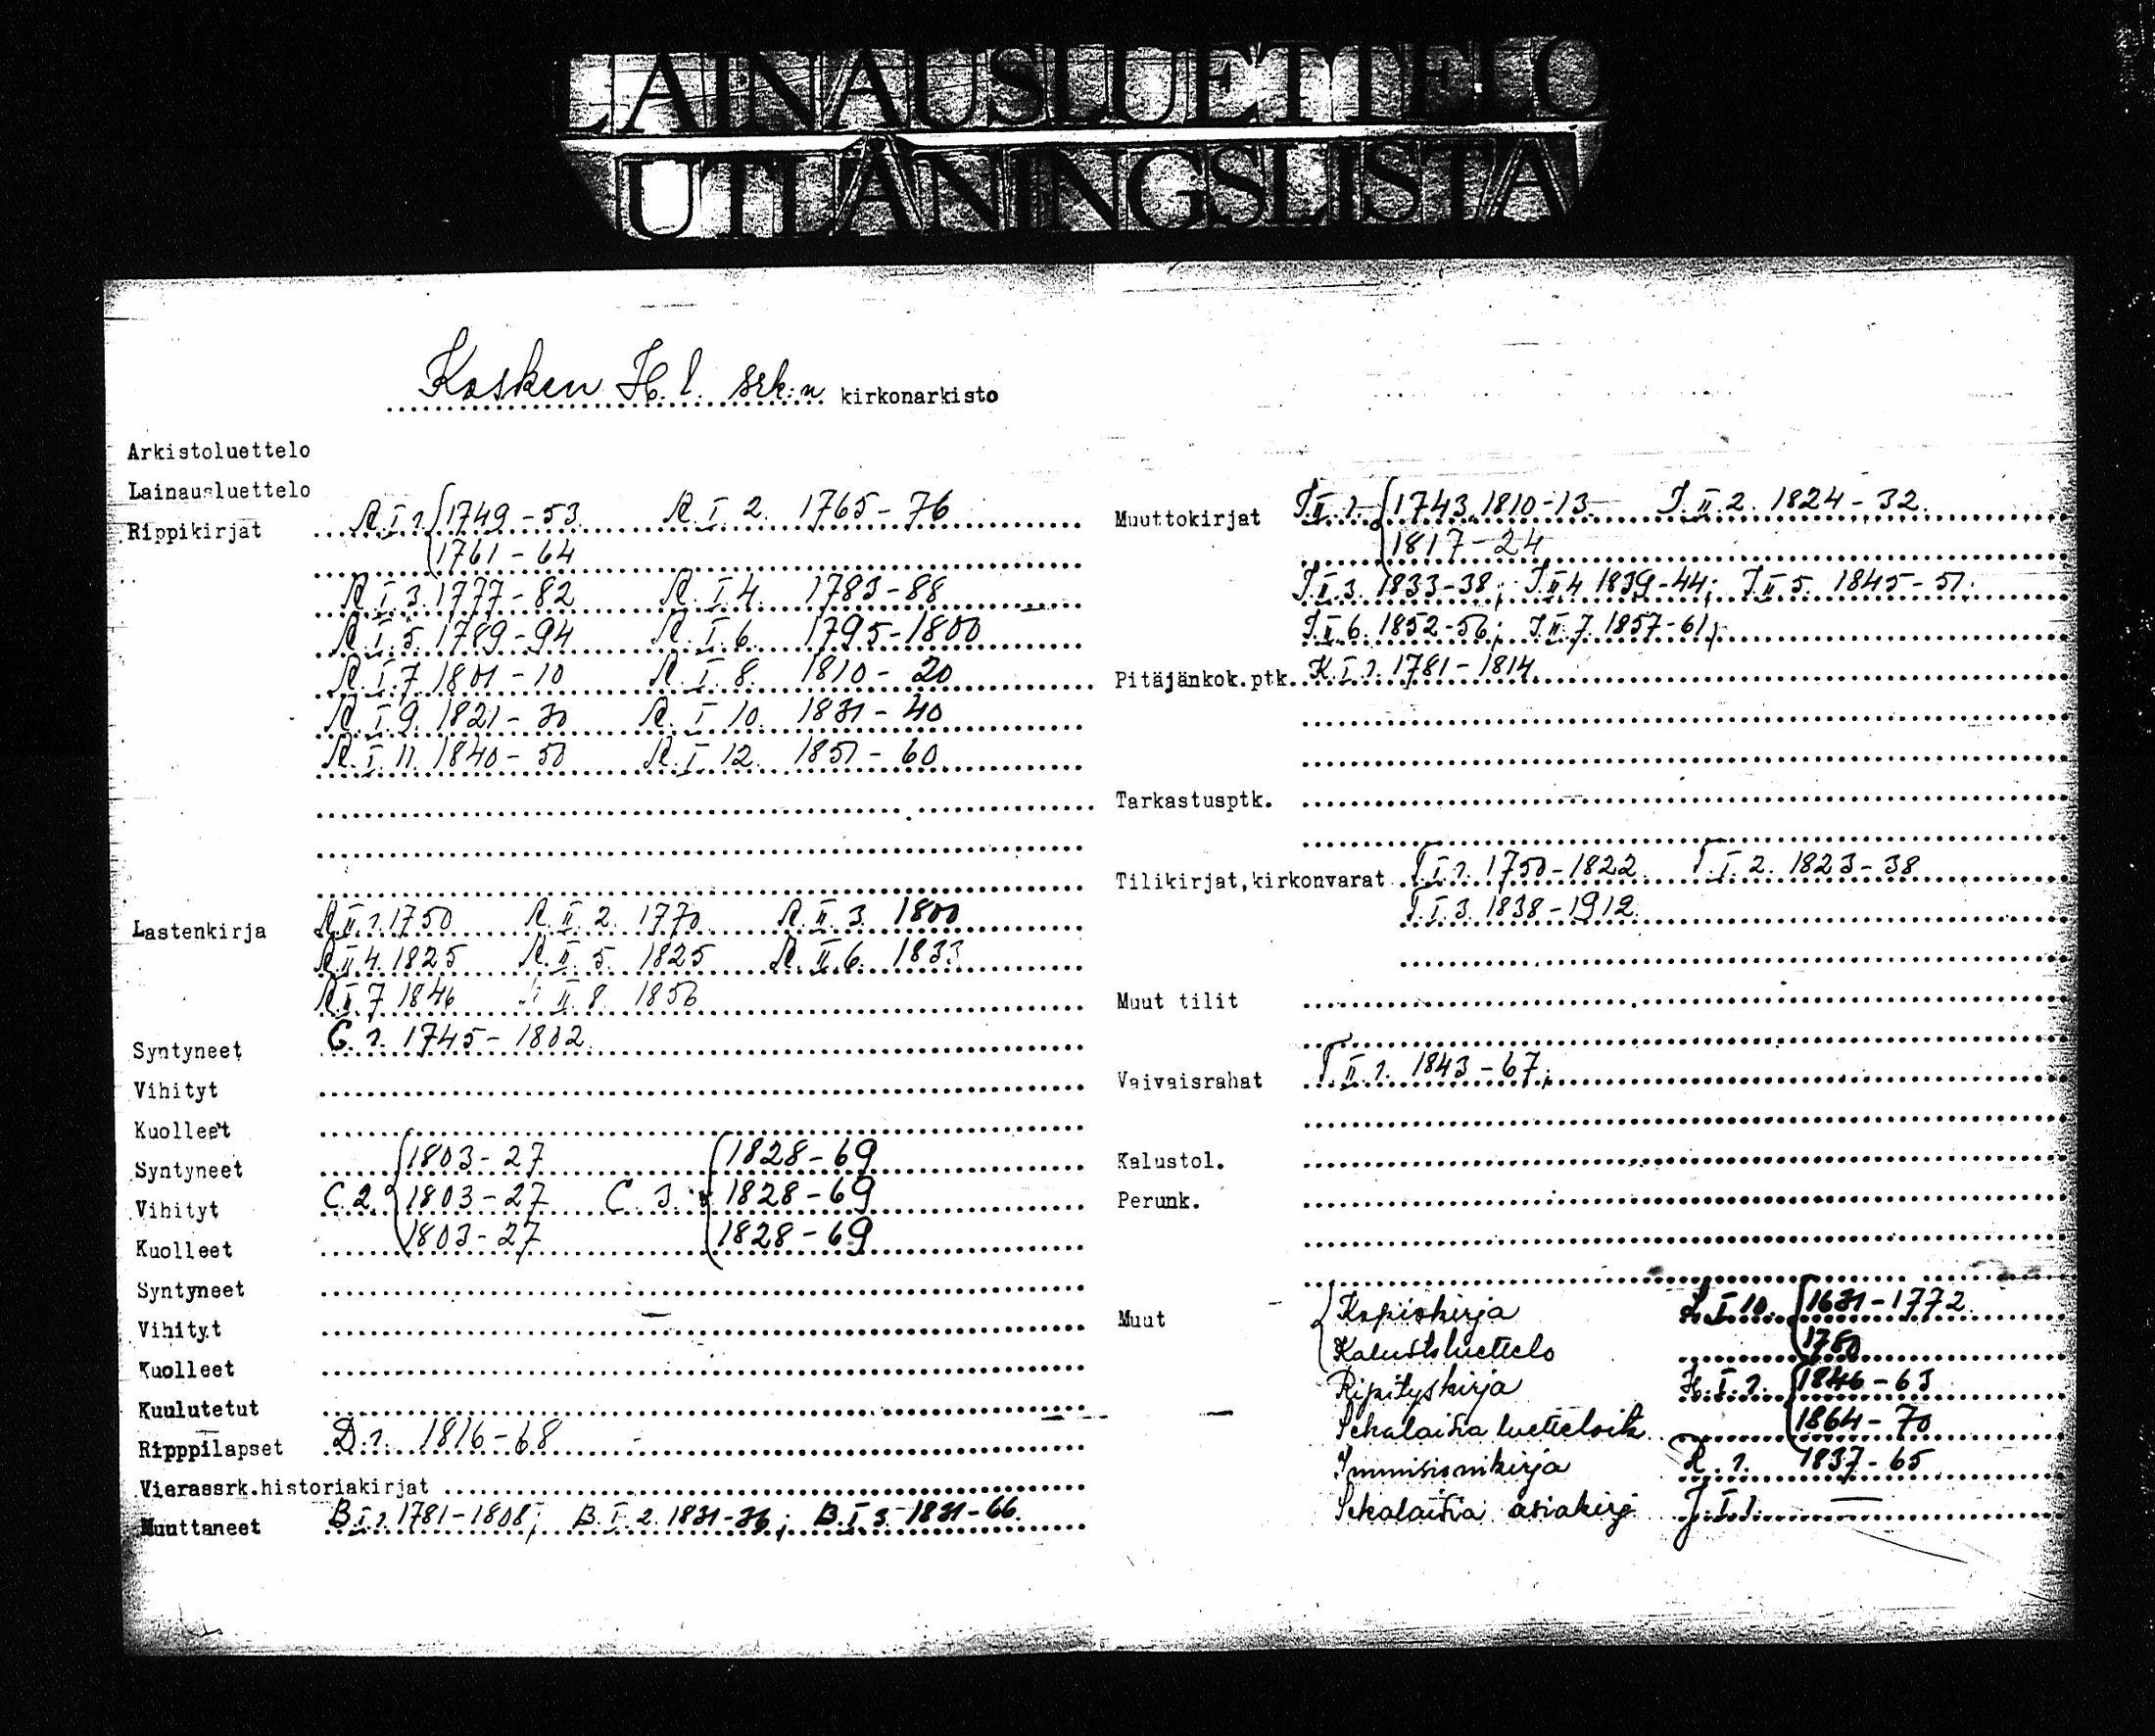 LAINAUSLUETTELO
UTLÅNINGSLISTA
Kosken H. l. srk:n kirkonarkisto
Arkistoluettelo
Lainausluettelo
Rippikirjat R. I. 1. 1749-53 R. I. 2. 1765-76
1761-64
R. I. 3. 1777-82 R. I. 4. 1783-88
R. I. 5. 1789-94 R. I. 6. 1795-1800
R. I. 7 1801-10 R. I. 8. 1810-20
R. I. 9. 1821-30 R. I. 10. 1831-40
R. I. 11. 1840-50 R. I. 12. 1851-60
Lastenkirja R. II. 1. 1750 R. II. 2. 1770 R. II. 3. 1800
R. II 4. 1825 R. II. 5. 1825 R. II. 6. 1833
R. II 7 1846 R II. 8. 1856
Syntyneet C. 1. 1745-1802
Vihityt
Kuolleet
Syntyneet 1803-27 1828-69
Vihityt C. 2. 1803-27 C. 3. 1828-69
Kuolleet 1803-27 1828-69
Syntyneet
Vihityt
Kuolleet
Kuulutetut
Ripppilapset D. 1. 1816-68
Vierassrk.historiakirjat
Muuttaneet B. I. 1. 1781-1808; B. I. 2. 1831-36; B. I. 3. 1831-66.
Muuttokirjat J. II. 1. 1743, 1810-13 J. II. 2. 1824-32.
1817-24
J. II. 3. 1833-38; J. II 4. 1839-44; J. II 5. 1845-51;
J. II. 6. 1852-56; J. II. 7. 1857-61;
Pitäjänkok.ptk. K. I. 1. 1781-1814.
Tarkastusptk.
Tilikirjat,kirkonvarat T. I. 1. 1750-1822 T. I. 2. 1823-38
T. I. 3. 1838-1912.
Muut tilit
Vaivaisrahat T. II. 1. 1843-67;
Kalustol.
Perunk.
Muut Kopiokirja I. 10. 1631-1772.
Kalustoluettelo 1780
Ripityskirja H. I. 1. 1846-63
Sekalaisia luetteloita 1864-70
Immisionikirja R. 1. 1837-65
Sekalaisia asiakirj J. I. 1. —